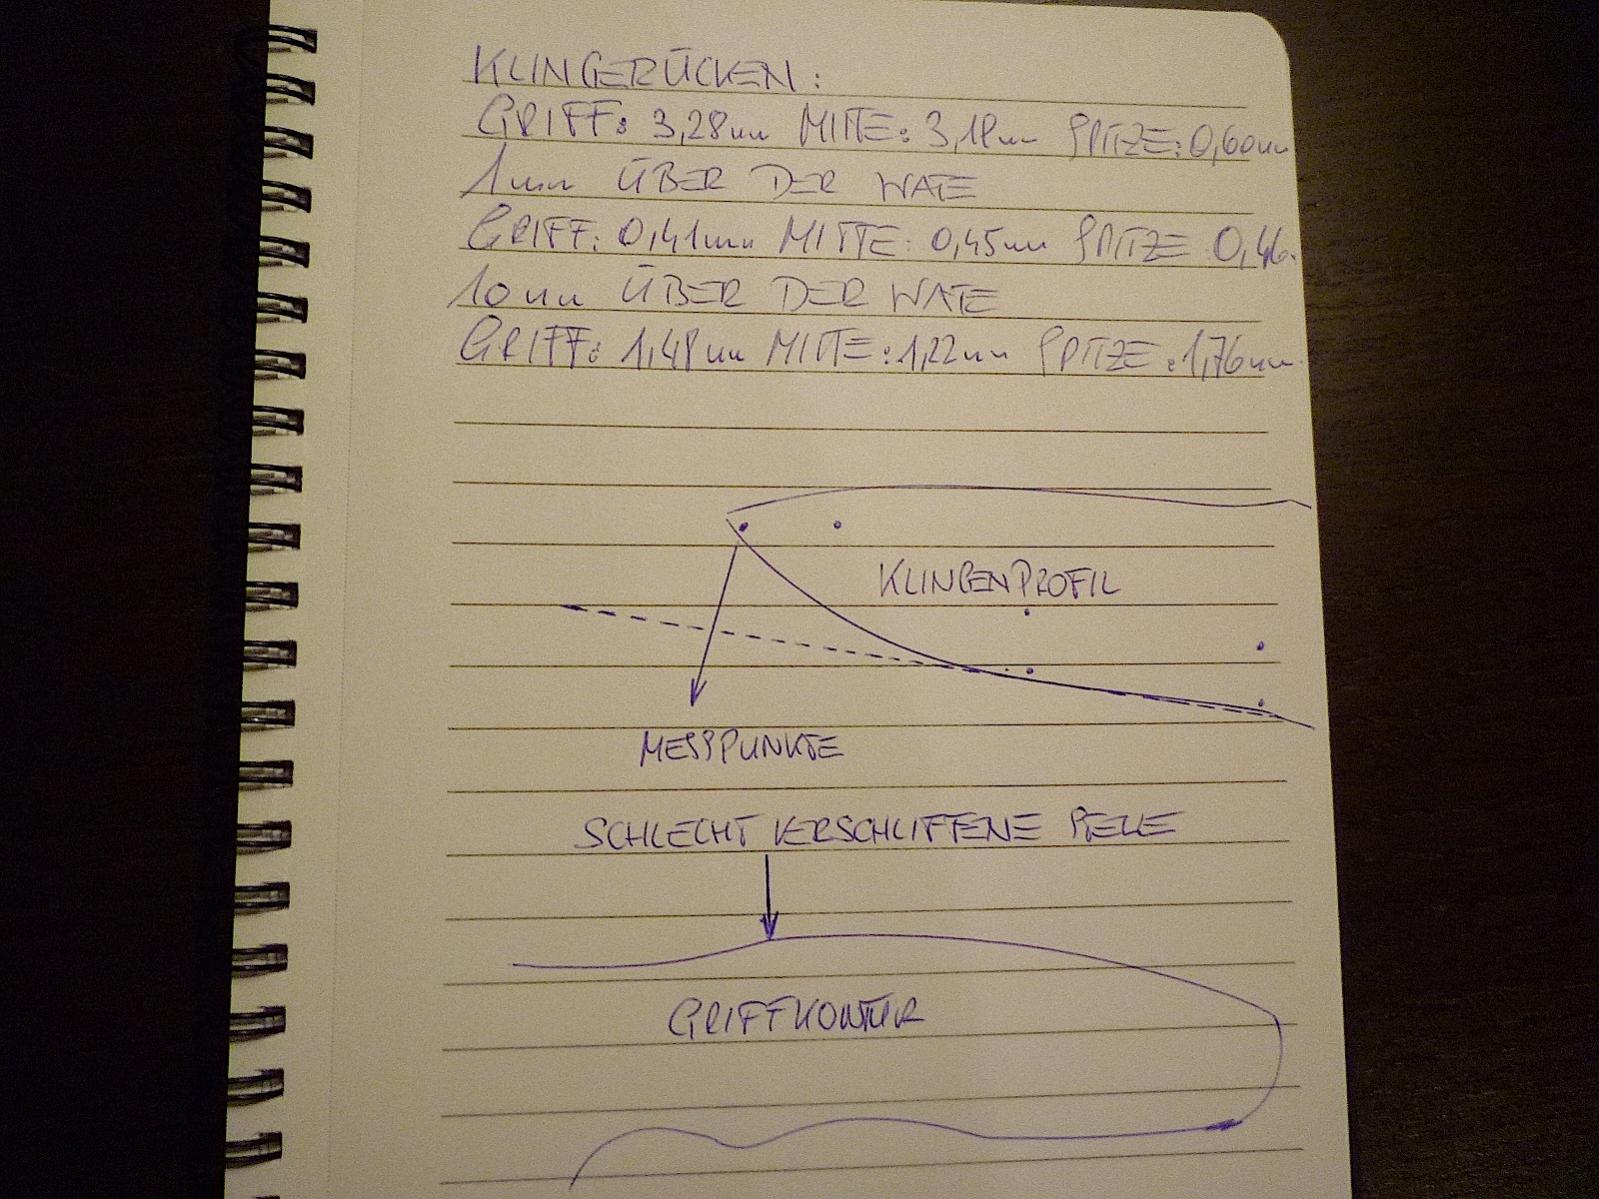 KLINGERÜCKEN:
GRIFF: 3,28mm MITTE: 3,18mm SPITZE: 0,60mm
1mm ÜBER DER WATE
GRIFF: 0,41mm MITTE: 0,45mm SPITZE 0,46
10mm ÜBER DER WATE
GRIFF: 1,48mm MITTE: 1,22mm SPITZE: 1,76mm
KLINGENPROFIL
MESSPUNKTE
SCHLECHT VERSCHLIFFENE
GRIFFKONTUR